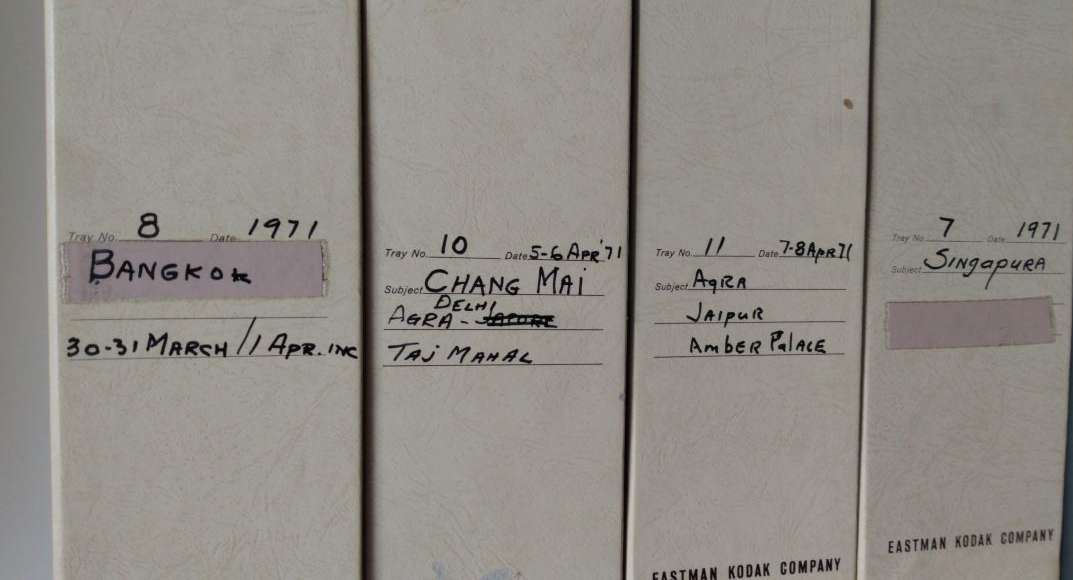 Tray No. 8 Date 1971
BANGKOK
30-31 MARCH / 1 APR. INC
Tray No. 10 Date 5-6 APR '71
Subject CHANG MAI
DELHI
AGRA -
TAJ MAHAL
Tray No. 11 Date 7-8 APR 71
Subject AGRA
JAIPUR
AMBER PALACE
EASTMAN KODAK COMPANY
Tray No. 7 Date 1971
Subject SINGAPURA
EASTMAN KODAK COMPANY